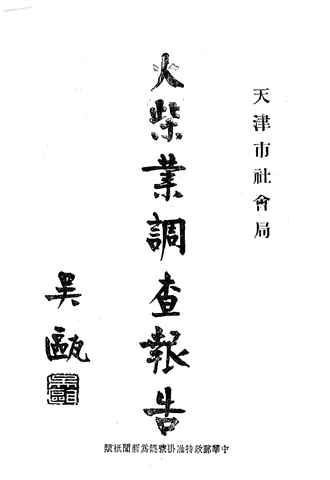 天津市社會局
火柴業調查報告
吳甌
中華郵政特准掛號認為新聞紙類